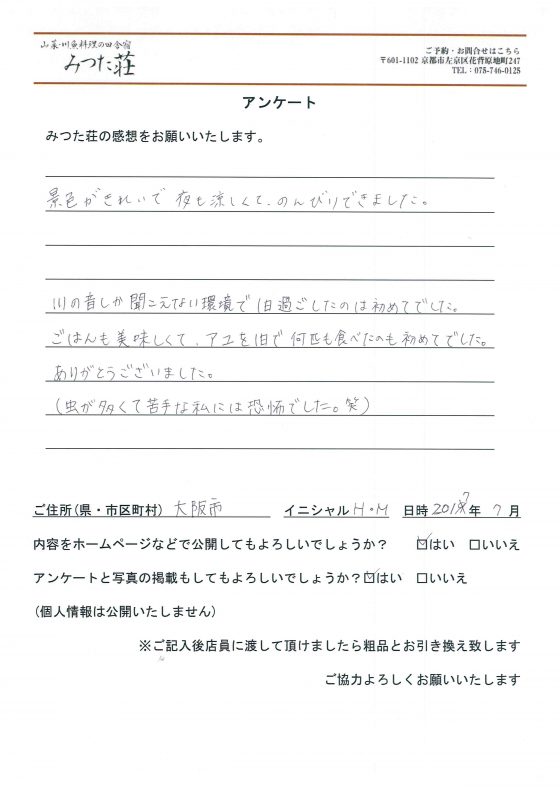 山菜・川魚料理の田舎宿
みつた荘
ご予約・お問合せはこちら
〒601-1102 京都市左京区花背原地町247
TEL：075-746-0125
アンケート
みつた荘の感想をお願いいたします。
景色がきれいで 夜も涼しくて、のんびりできました。
川の音しか聞こえない環境で1日過ごしたのは初めてでした。
ごはんも美味しくて、アユを1日で何匹も食べたのも初めてでした。
ありがとうございました。
(虫が多くて苦手な私には恐怖でした。笑)
ご住所(県・市区町村) 大阪市 イニシャル H.M 日時 2017年 7月
内容をホームページなどで公開してもよろしいでしょうか？ ☑はい □いいえ
アンケートと写真の掲載もしてもよろしいでしょうか？☑はい □いいえ
(個人情報は公開いたしません)
※ご記入後店員に渡して頂けましたら粗品とお引き換え致します
ご協力よろしくお願いいたします